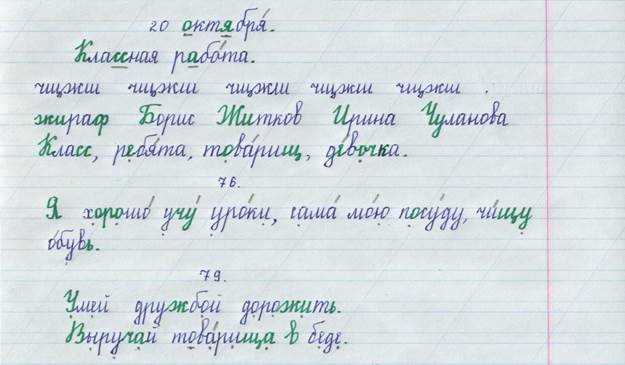 20 октября́.
Классная рабо́та.
чщжш чщжш чщжш чщжш чщжш .
жираф Борис Житков Ирина Чуланова
Класс, ребя́та, това́рищ, де́вочка.
76.
Я хорошо́ учу́ уро́ки, сама́ мо́ю посу́ду, чи́щу
о́бувь.
79.
Умей дружбой дорожить.
Выручай това́рища в беде.